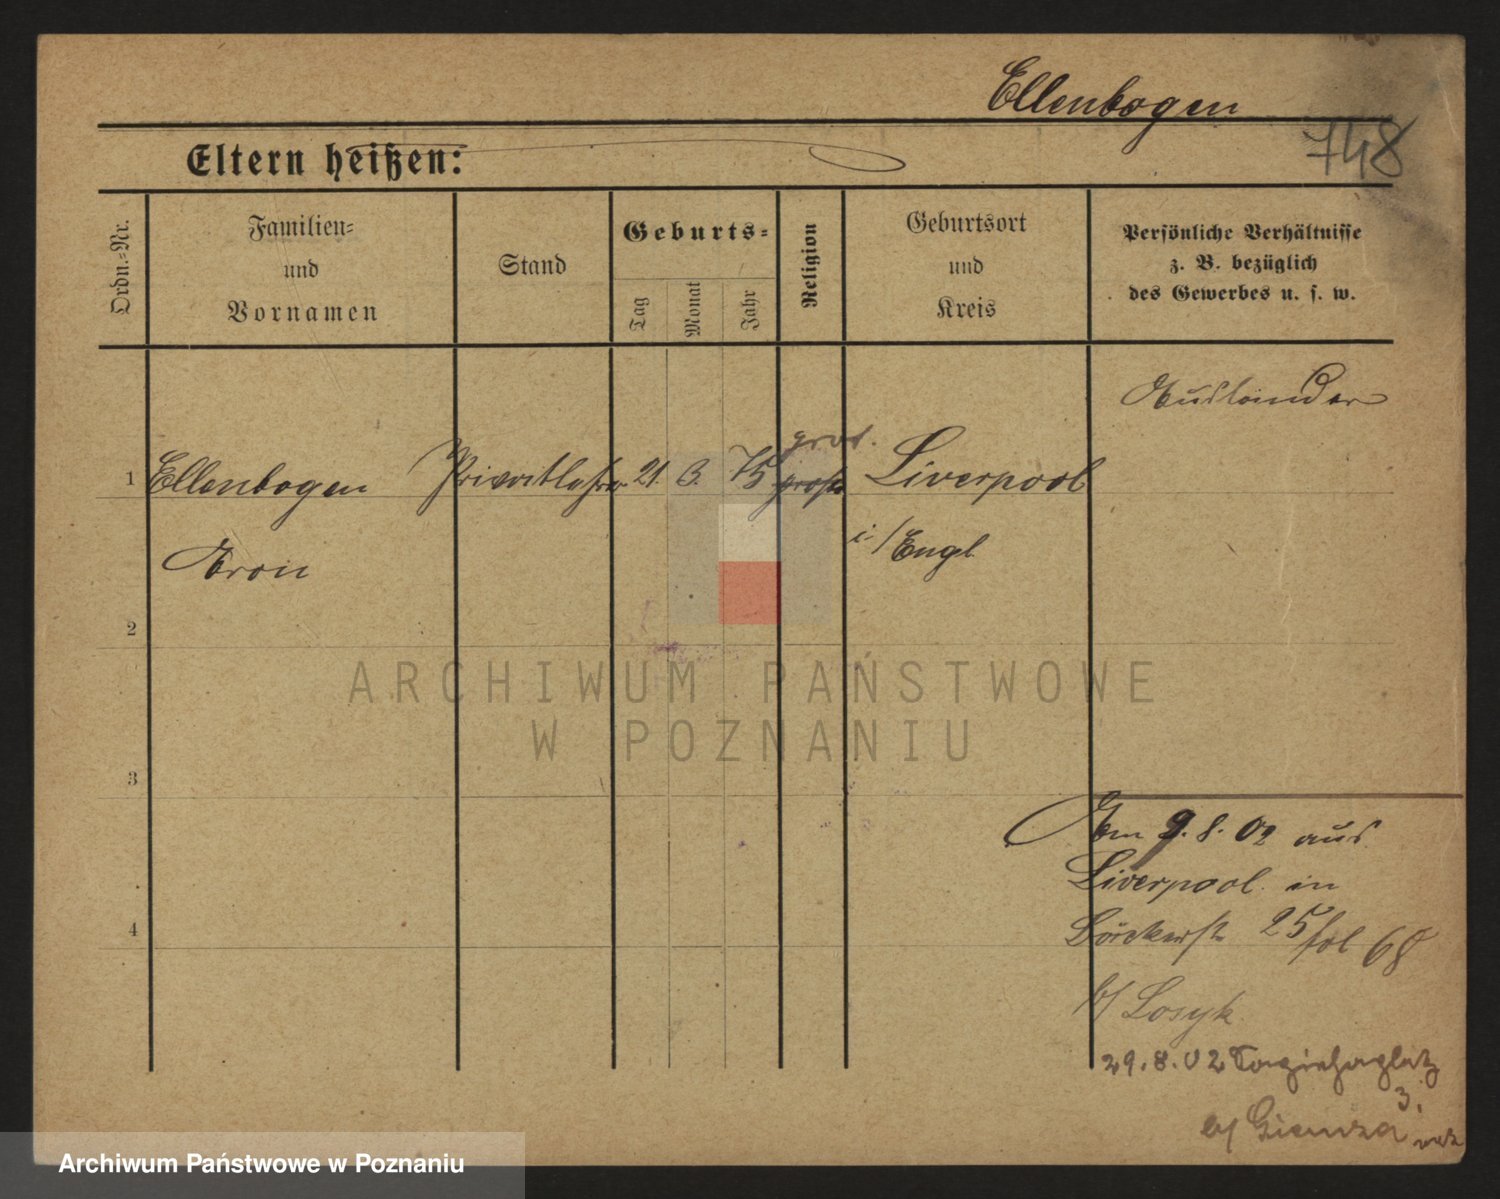 Ellenbogen
748
Eltern heißen:
Ordn.-Nr.
Familien-
und
Vornamen
Stand
Geburts-
Tag
Monat
Jahr
Religion
Geburtsort
und
Kreis
Persönliche Verhältnisse
z. B. bezüglich
des Gewerbes u. s. w.
Ausländer
1 Ellenbogen Privatlehrer 21. 75 Liverpool
i/Engl.
Aron
2
3
4
Am 9.8.02 aus
Liverpool in
25 fol 68
b/ Losyk
29.8.02 Sapiehaplatz
3.
b/
ARCHIWUM PAŃSTWOWE
W POZNANIU
Archiwum Państwowe w Poznaniu